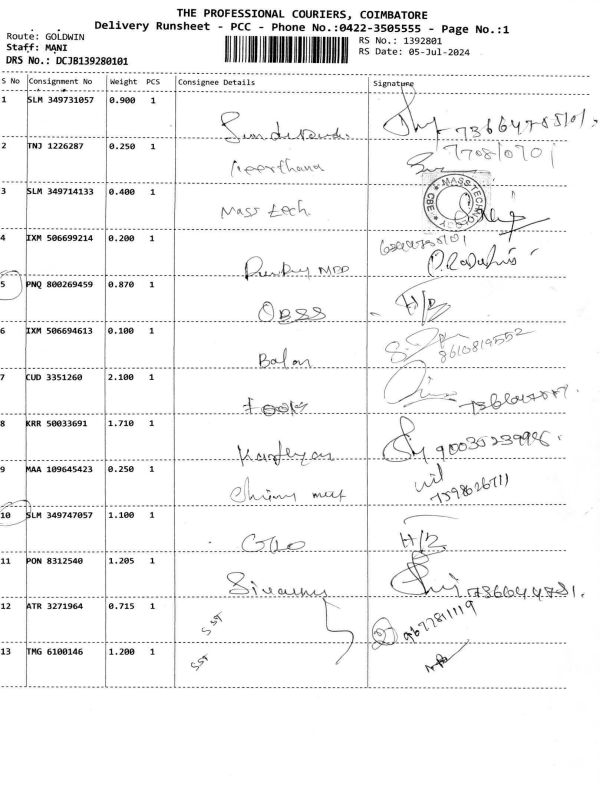 THE PROFESSIONAL COURIERS, COIMBATORE
Delivery Runsheet - PCC - Phone No.:0422-3505555 - Page No.:1
Route: GOLDWIN RS No.: 1392801
Staff: MANI RS Date: 05-Jul-2024
DRS No.: DCJB139280101
S No Consignment No Weight PCS Consignee Details Signature
1 SLM 349731057 0.900 1
2 TNJ 1226287 0.250 1 Keerthana
3 SLM 349714133 0.400 1 Mass tech MASS TECHNOLOGY CBE
4 IXM 506699214 0.200 1
5 PNQ 800269459 0.870 1 OBSS H/R
6 IXM 506694613 0.100 1 Balan 8610819552
7 CUD 3351260 2.100 1
8 KRR 50033691 1.710 1
9 MAA 109645423 0.250 1 7598026711
10 SLM 349747057 1.100 1 H/R
11 PON 8312540 1.205 1
12 ATR 3271964 0.715 1 SST 9677811119
13 TMG 6100146 1.200 1 SST